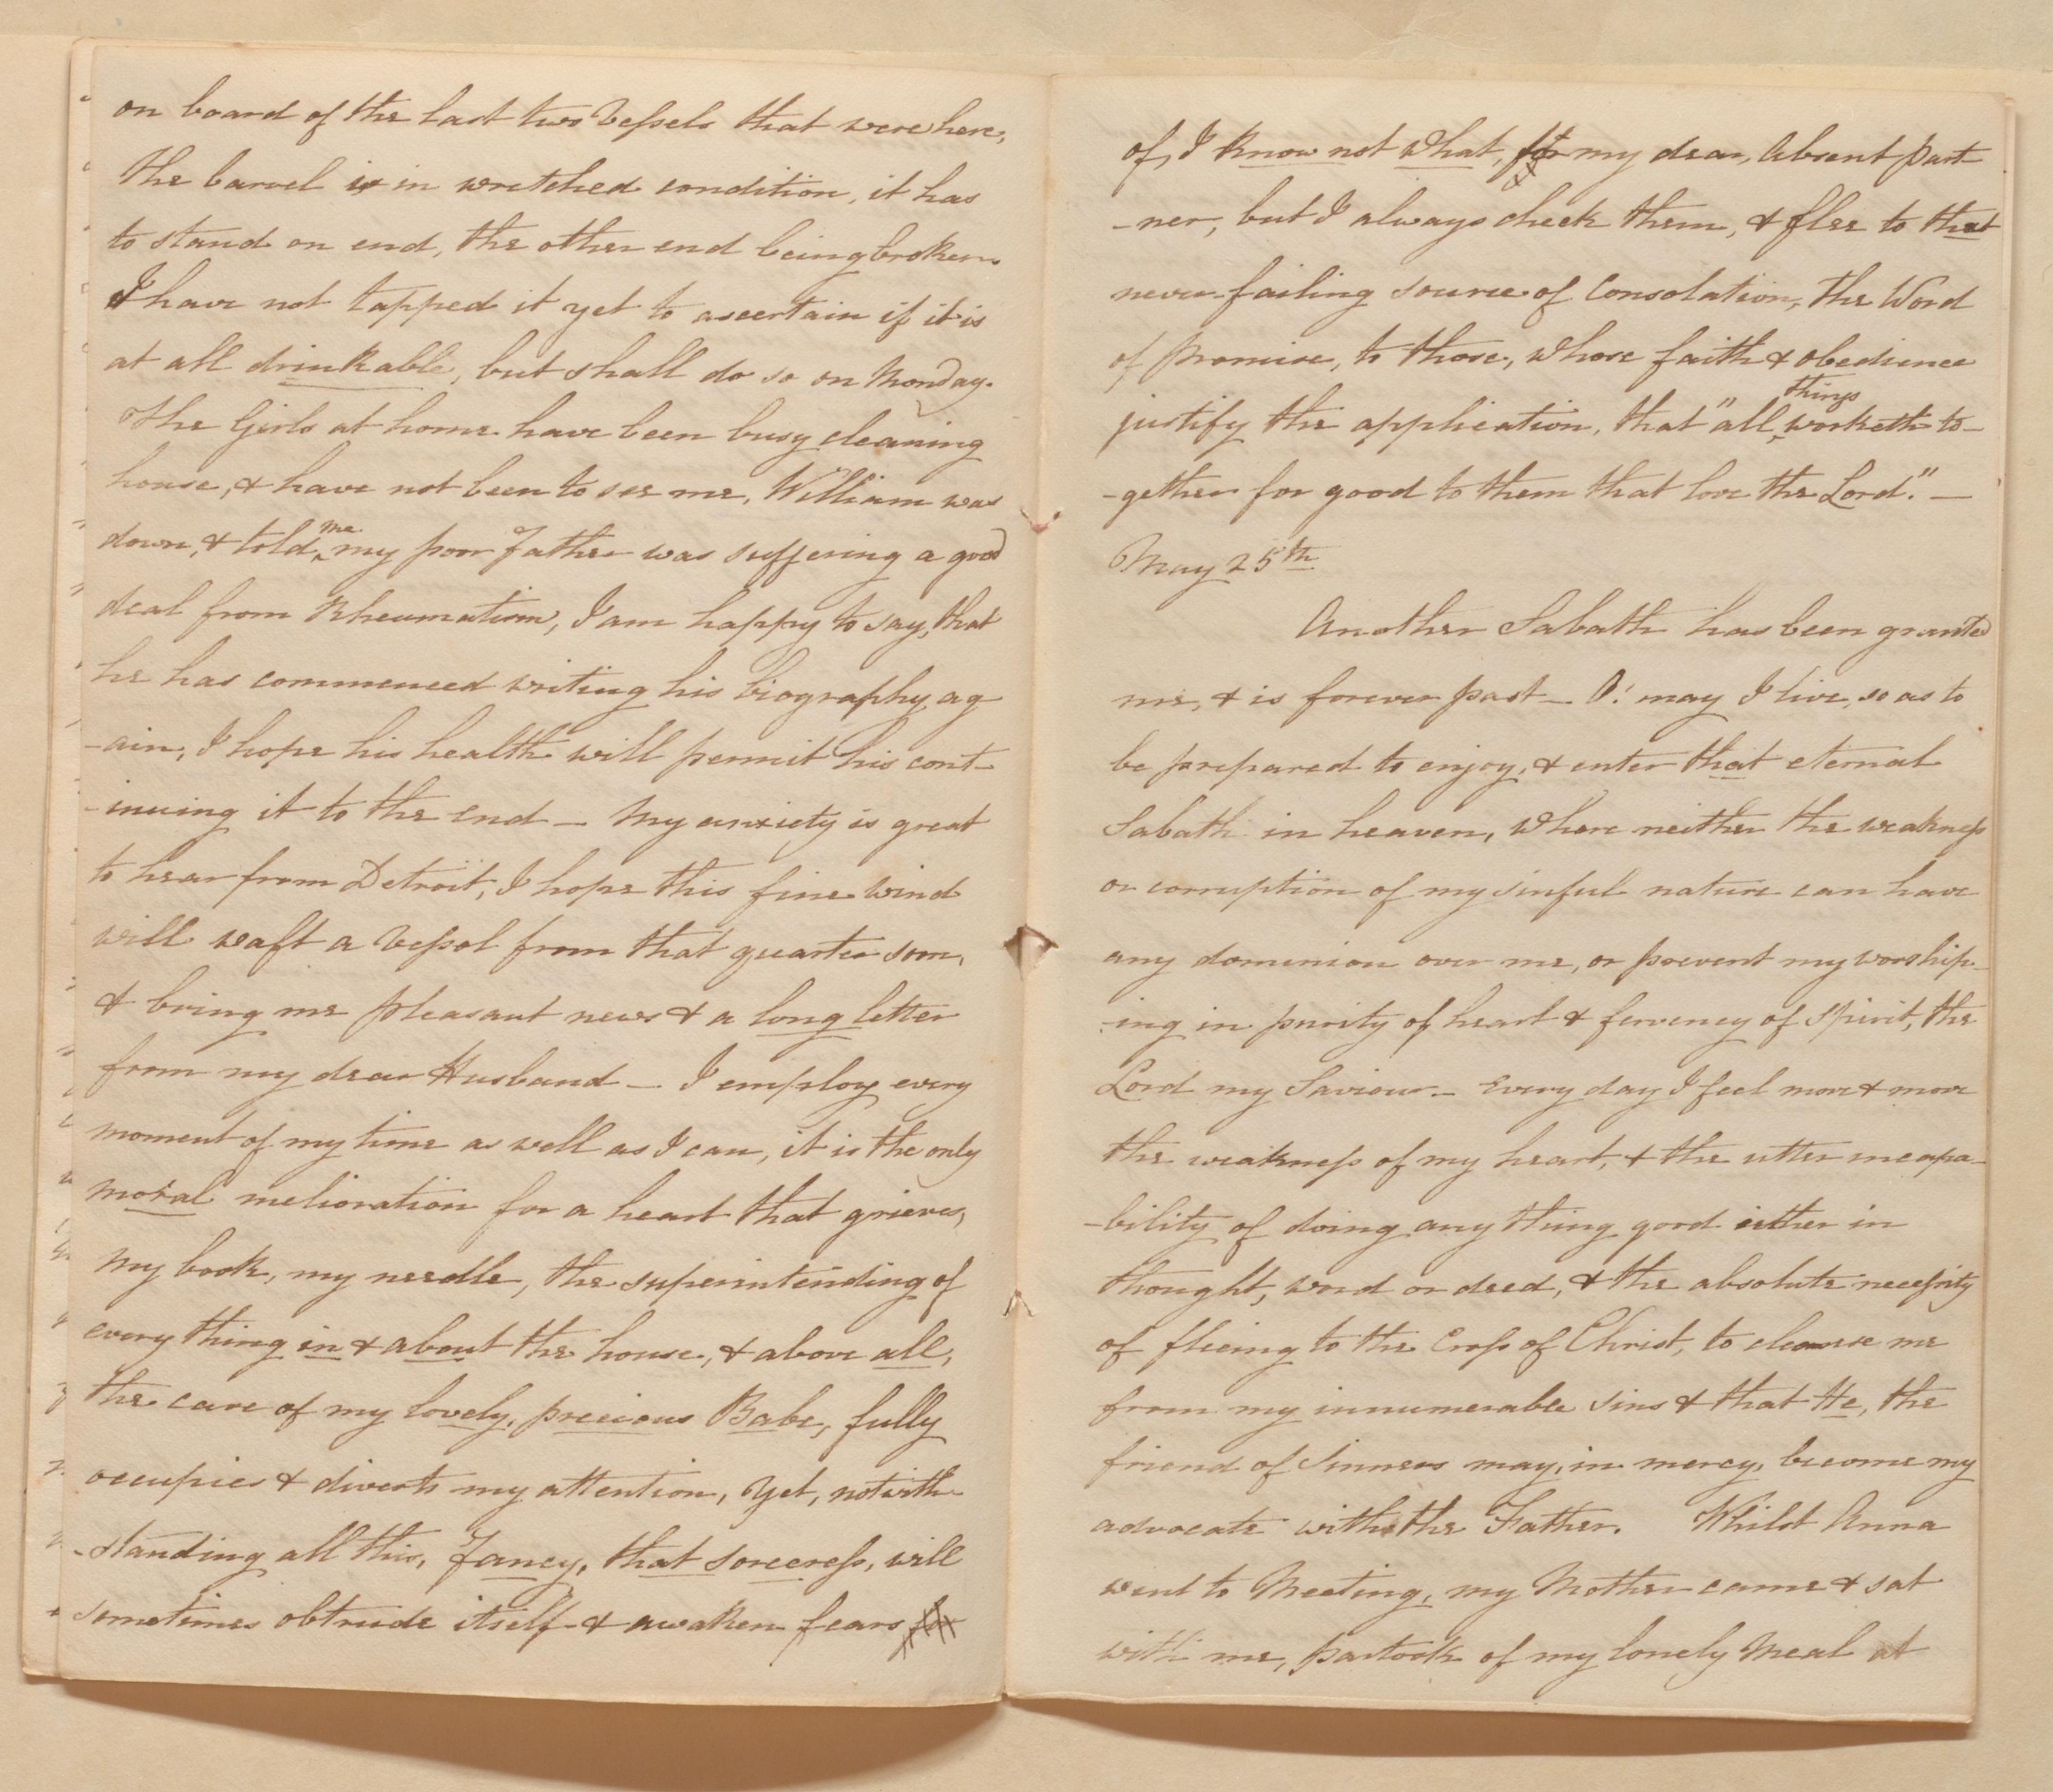 on board of the last two Vessels that were here,
The barrel is in wretched condition, it has
to stand on end, the other end being broken.
I have not tapped it yet to ascertain if it is
at all drinkable, but shall do so on Monday.
The Girls at home have been busy cleaning
house, & have not been to see me, William was
down, & told me my poor Father was suffering a good
deal from Rheumatism, I am happy to say, that
he has commenced writing his biography, ag
-ain, I hope his health will permit his cont-
-inuing it to the end — My anxiety is great
to hear from Detroit, I hope this fine wind
will waft a Vessel from that quarter soon,
& bring me pleasant news & a long letter
from my dear Husband — I employ every
moment of my time as well as I can, it is the only
moral melioration for a heart that grieves,
My book, my needle, the superintending of
every thing in & about the house, & above all,
the care of my lovely, precious Babe, fully
occupies & diverts my attention, Yet, notwith
-standing all this, Fancy, that sorceress, will
sometimes obtrude itself & awaken fears for
of, I know not what, for my dear, Absent part
-ner, but I always check them, & flee to that
never-failing source of Consolation, the Word
of Promise, to those, whose faith & obedience
justify the application, that "all things worketh to-
-gether for good to them that love the Lord." —
May 25th
Another Sabath has been granted
me, & is forever past — O! may I live, so as to
be prepared to enjoy, & enter that eternal
Sabath in heaven, Where neither the weakness
or corruption of my sinful nature can have
any dominion over me, or prevent my worship-
-ing in purity of heart & fervency of Spirit, the
Lord my Saviour — Every day I feel more & more
the weakness of my heart, & the utter incapa-
-bility of doing any thing good either in
thought, word or deed, & the absolute necessity
of flieing to the Cross of Christ, to cleanse me
from my innumerable sins & that He, the
friend of Sinners may, in mercy, become my
advocate with the Father. Whilst Anna
went to Meeting, my Mother came & sat
with me, partook of my lonely Meal at